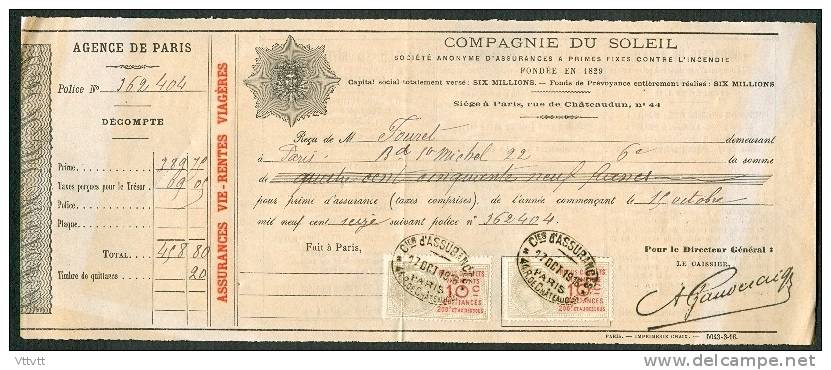 AGENCE DE PARIS
Police Nº 362404
DÉCOMPTE
Prime
Taxes perçues pour le Trésor
Police
Plaque
TOTAL 458 80
Timbre de quittance 20
ASSURANCES VIE-RENTES VIAGÈRES
COMPAGNIE DU SOLEIL
SOCIÉTÉ ANONYME D'ASSURANCES A PRIMES FIXES CONTRE L'INCENDIE
FONDÉE EN 1829
Capital social totalement versé: SIX MILLIONS. — Fonds de Prévoyance entièrement réalisé: SIX MILLIONS
Siège à Paris, rue de Châteaudun, nº 44
Reçu de M Touret demeurant
à Paris Bd St Michel 22 6e la somme
de quatre cent cinquante neuf francs
pour prime d'assurance (taxes comprises), de l'année commençant le 15 octobre
mil neuf cent seize suivant police nº 362404.
Fait à Paris,
Pour le Directeur Général:
LE CAISSIER,
Cies D'ASSURANCES
27 OCT
PARIS
44 R. DE CHATEAUDUN
10c
QUITTANCES
Cies D'ASSURANCES
27 OCT
PARIS
44 R. DE CHATEAUDUN
10c
QUITTANCES
PARIS. — IMPRIMERIE CHAIX. — 5643-3-16.
Vttvtt
delcampe.net